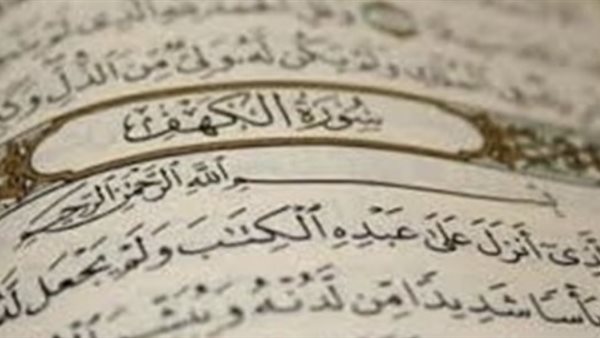 وَلَمْ يَكُن لَّهُ وَلِيٌّ مِّنَ ٱلذُّلِّ
سُورَةُ الْكَهْفِ
بِسْمِ ٱللَّهِ ٱلرَّحْمَٰنِ ٱلرَّحِيمِ
أَنزَلَ عَلَىٰ عَبْدِهِ ٱلْكِتَٰبَ وَلَمْ يَجْعَل
بَأْسًا شَدِيدًا مِّن لَّدُنْهُ وَيُبَشِّرَ